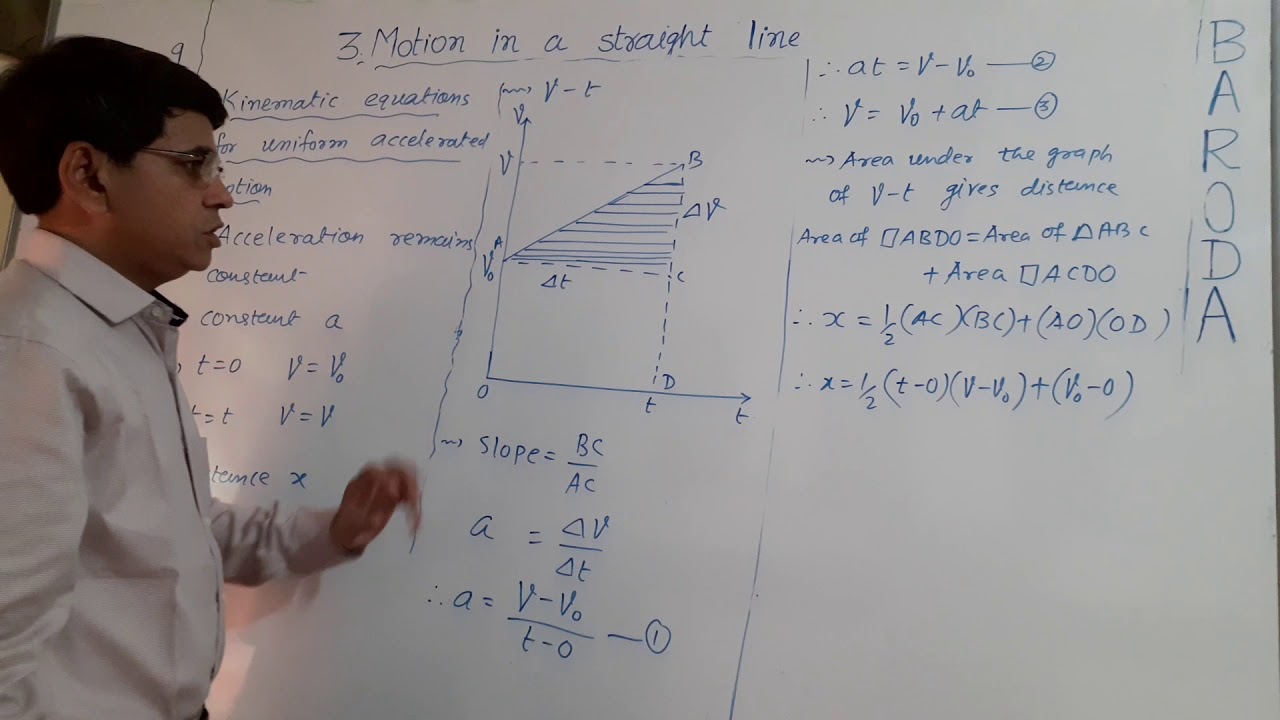 9
3. Motion in a straight line
Kinematic equations
for uniform accelerated
Acceleration remains
constant
constant a
t=0 V=V₀
t=t V=V
x
⇝ V-t
V
V
B
ΔV
A
V₀
Δt
C
O
D
t
t
⇝ Slope = BC/AC
a = ΔV/Δt
∴ a = (V-V₀)/(t-0) — ①
∴ at = V-V₀ — ②
∴ V = V₀ + at — ③
⇝ Area under the graph
of V-t gives distance
Area of □ABDO = Area of ΔABC
+ Area □ACDO
∴ x = 1/2 (AC)(BC)+(AO)(OD)
∴ x = 1/2 (t-0)(V-V₀)+(V₀-0)
B
A
R
O
D
A